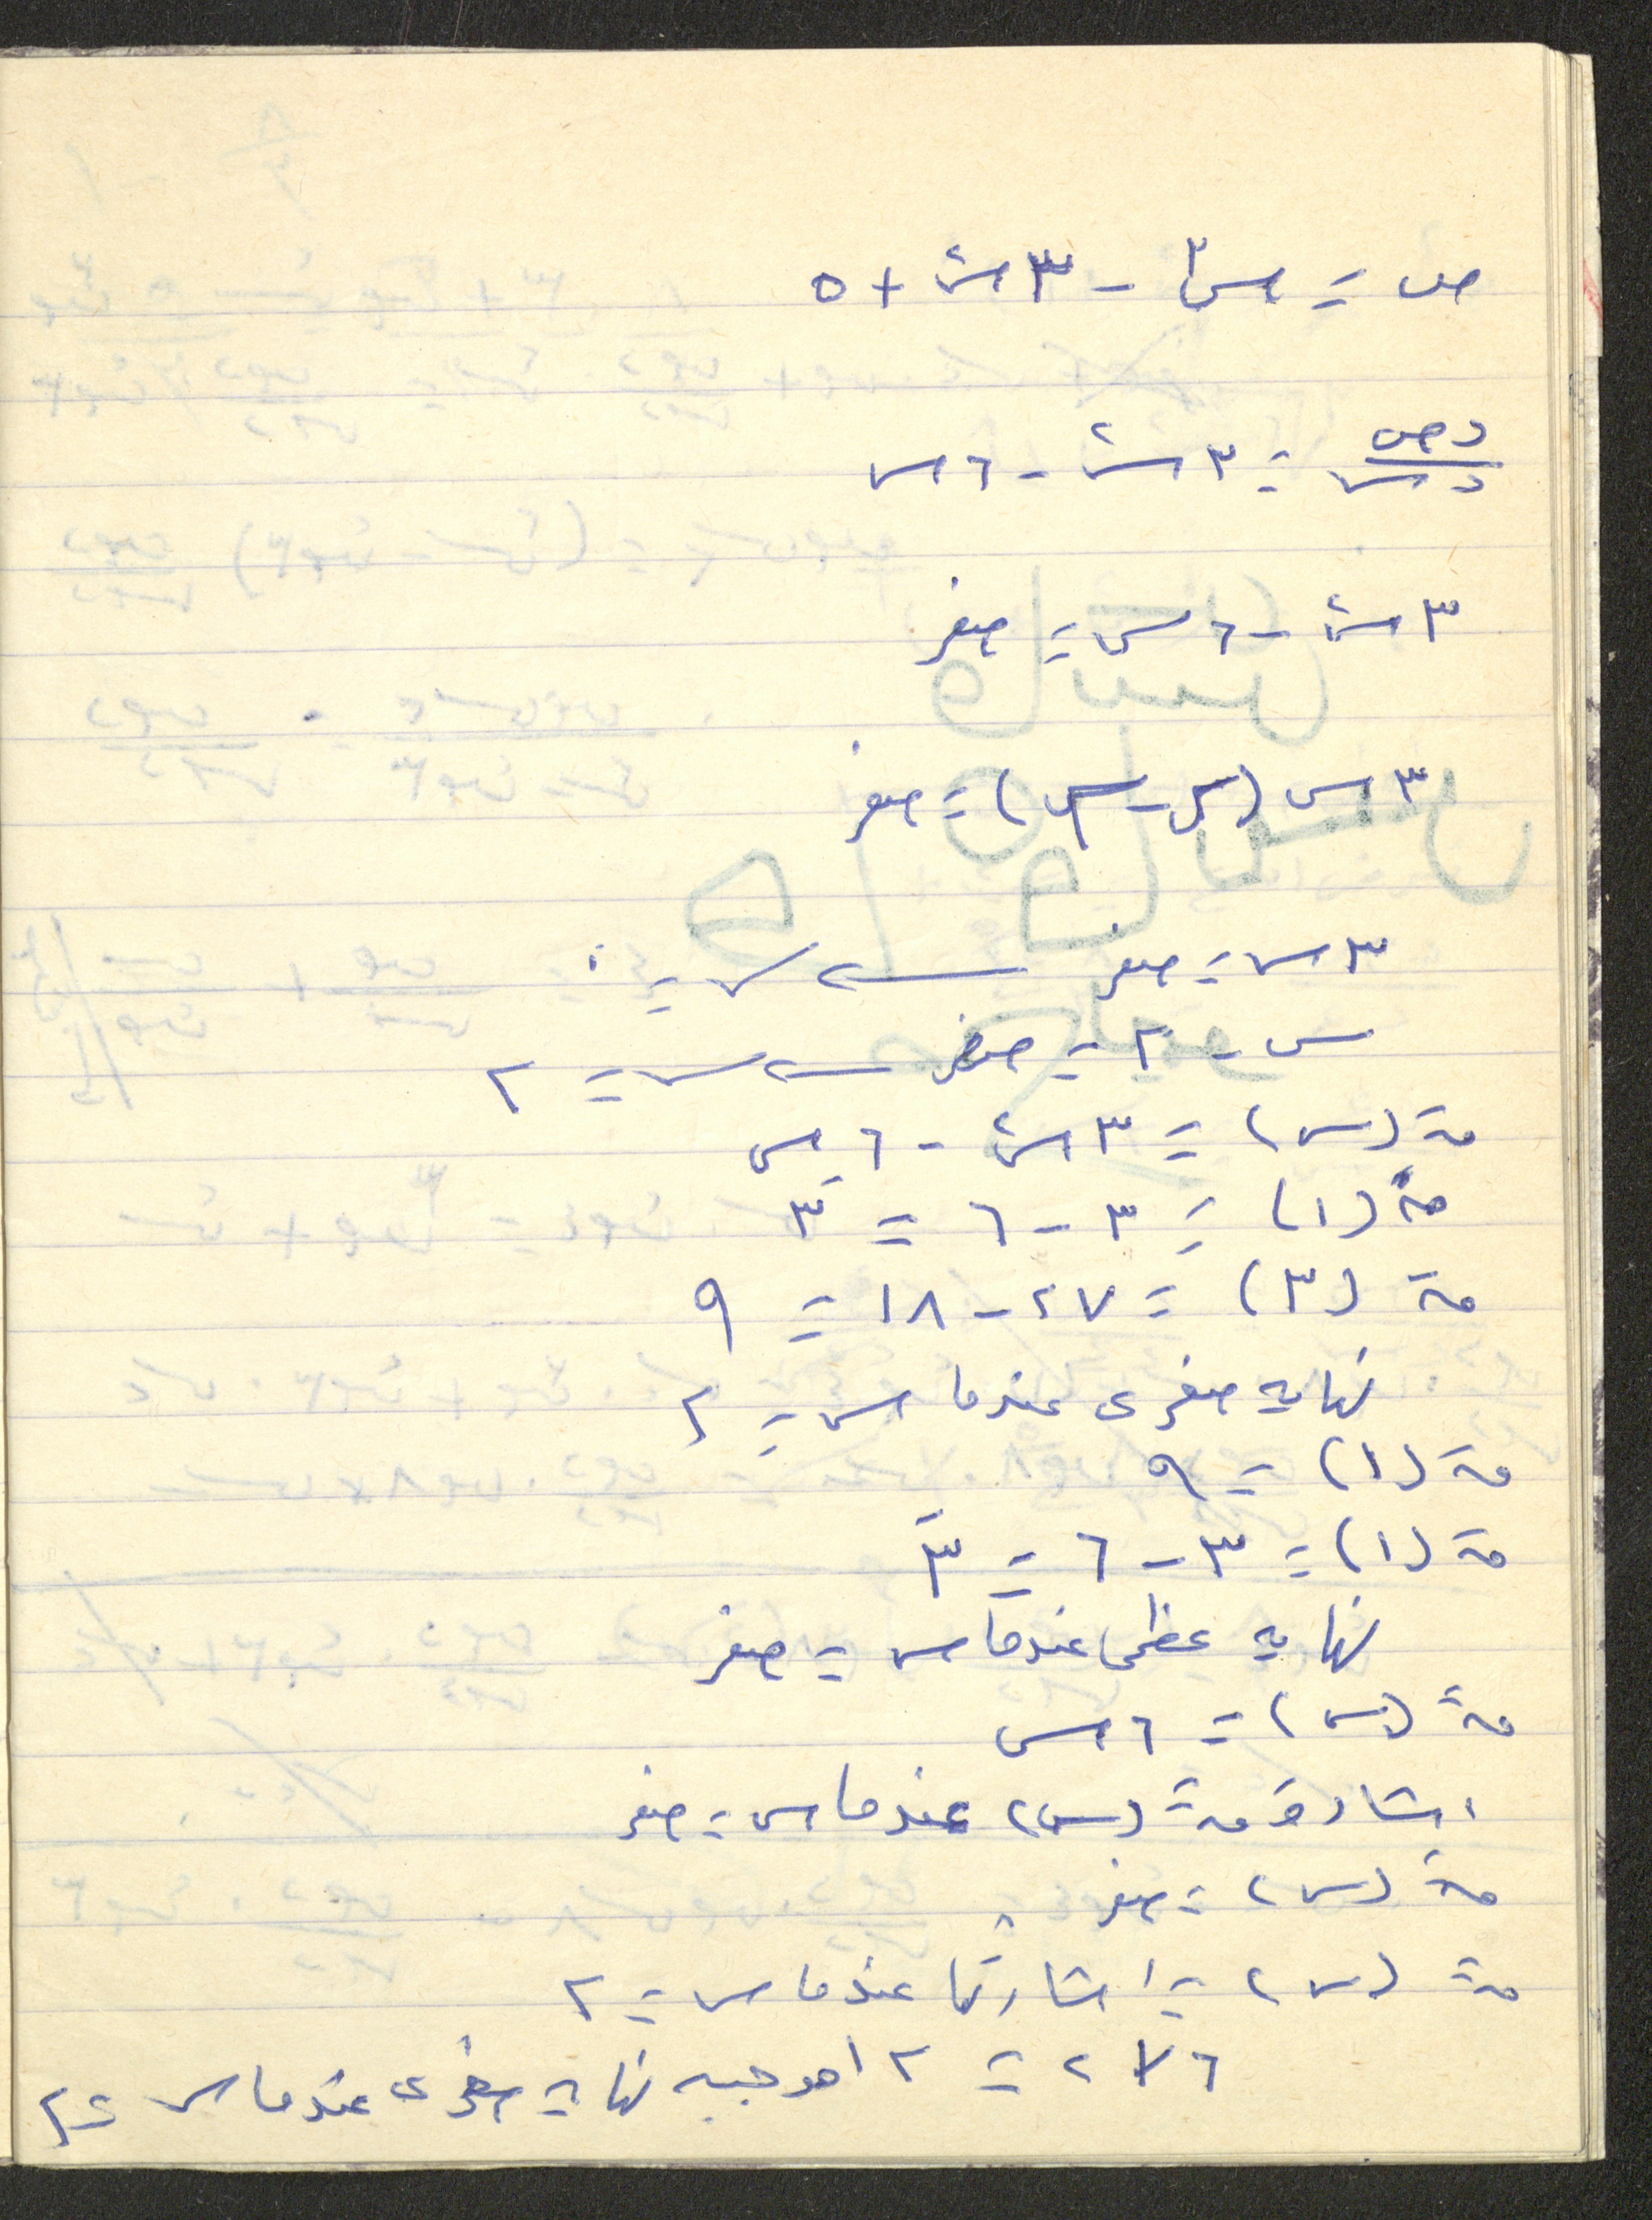 ص = س٣ - ٣س٢ + ٥
دص/دس = ٣س٢ - ٦س
٣س٢ - ٦س = صفر
٣س (س - ) = صفر
٣س = صفر س = ٠
س - ٢ = صفر س = ٢
قَ (س) = ٣س٢ - ٦س
قَ (١) = ٣ - ٦ = -٣
قَ (٣) = ٢٧ - ١٨ = ٩
نهاية صغرى عندما س = ٢
قَ (-١) = ٩
قَ (١) = ٣ - ٦ = -٣
نهاية عظمى عندما س = صفر
قً (س) = ٦س
اشارة قً (س) عندما س = صفر
قً (س) = صفر
قً (س) = اشارتها عندما س = ٢
٦ × ٢ = ١٢ موجبه نهاية صغرى عندما س = ٢